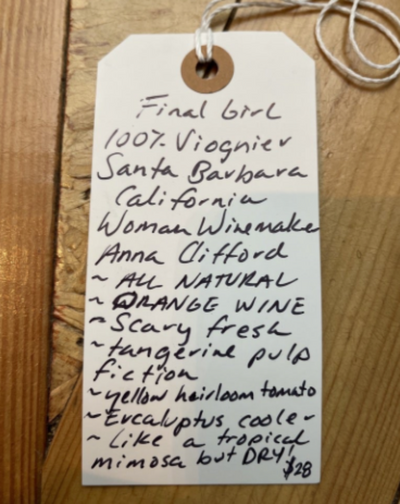 Final Girl
100% Viognier
Santa Barbara
California
Woman Winemaker
Anna Clifford
~ ALL NATURAL
~ ORANGE WINE
~ Scary fresh
~ tangerine pulp
fiction
~ yellow heirloom tomato
~ Eucaluptus cooler
~ Like a tropical
mimosa but DRY!
$28